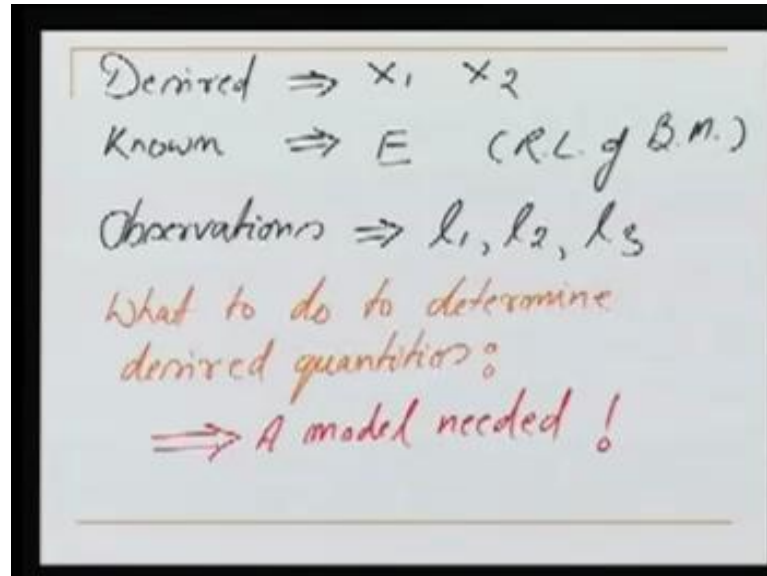 Desired ⇒ x₁ x₂
Known ⇒ E (R.L. of B.M.)
Observations ⇒ l₁, l₂, l₃
What to do to determine
desired quantities:
⇒ A model needed !